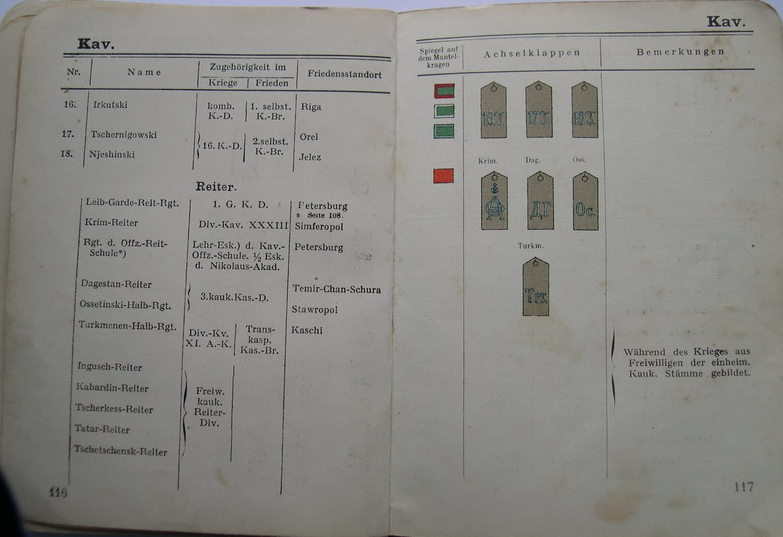 Kav.
Nr.
Name
Zugehörigkeit im
Kriege
Frieden
Friedensstandort
16.
Irkutski
komb.
K.-D.
1. selbst.
K.-Br.
Riga
17.
Tschernigowski
16. K.-D.
2. selbst.
K.-Br.
Orel
18.
Njeshinski
Jelez
Reiter.
Leib-Garde-Reit-Rgt.
1. G. K. D.
Petersburg
s. Seite 108.
Krim-Reiter
Div.-Kav. XXXIII
Simferopol
Rgt. d. Offz.-Reit-
Schule*)
Lehr-Esk.) d. Kav.-
Offz.-Schule. ½ Esk.
d. Nikolaus-Akad.
Petersburg
Dagestan-Reiter
3.kauk.Kas.-D.
Temir-Chan-Schura
Ossetinski-Halb-Rgt.
Stawropol
Turkmenen-Halb-Rgt.
Div.-Kv.
XI. A.-K.
Trans-
kasp.
Kas.-Br.
Kaschi
Ingusch-Reiter
Kabardin-Reiter
Tscherkess-Reiter
Tatar-Reiter
Tschetschensk-Reiter
Freiw.
kauk.
Reiter-
Div.
116
Kav.
Spiegel auf
dem Mantel-
kragen
Achselklappen
Bemerkungen
16.
17.
18.
Krim.
Dag.
Oss.
ДГ
Ос.
Turkm.
Während des Krieges aus
Freiwilligen der einheim.
Kauk. Stämme gebildet.
117